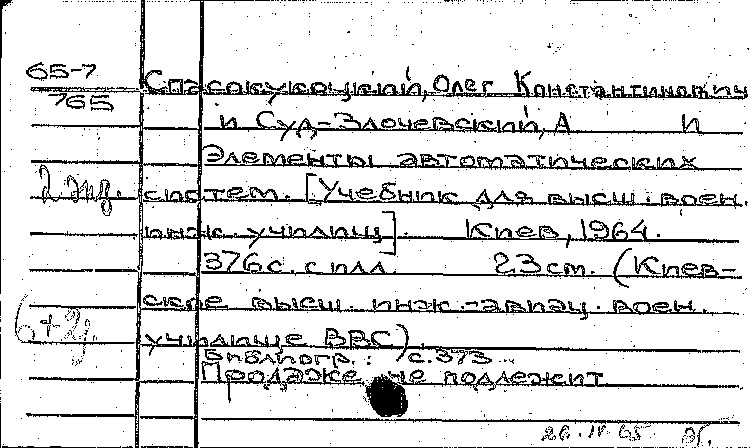 65-7
765
Спасокукоцкий, Олег Константинович
и Суд-Злочевский, А И
Элементы автоматических
систем. [Учебник для высш. воен.
инж. училищ]. Киев, 1964.
376 с. с илл. 23 см. (Киев-
ское высш. инж.-авиац. воен.
училище ВВС).
Библиогр.: с. 373
Продаже не подлежит
2 экз.
6+2j.
26.IV.65